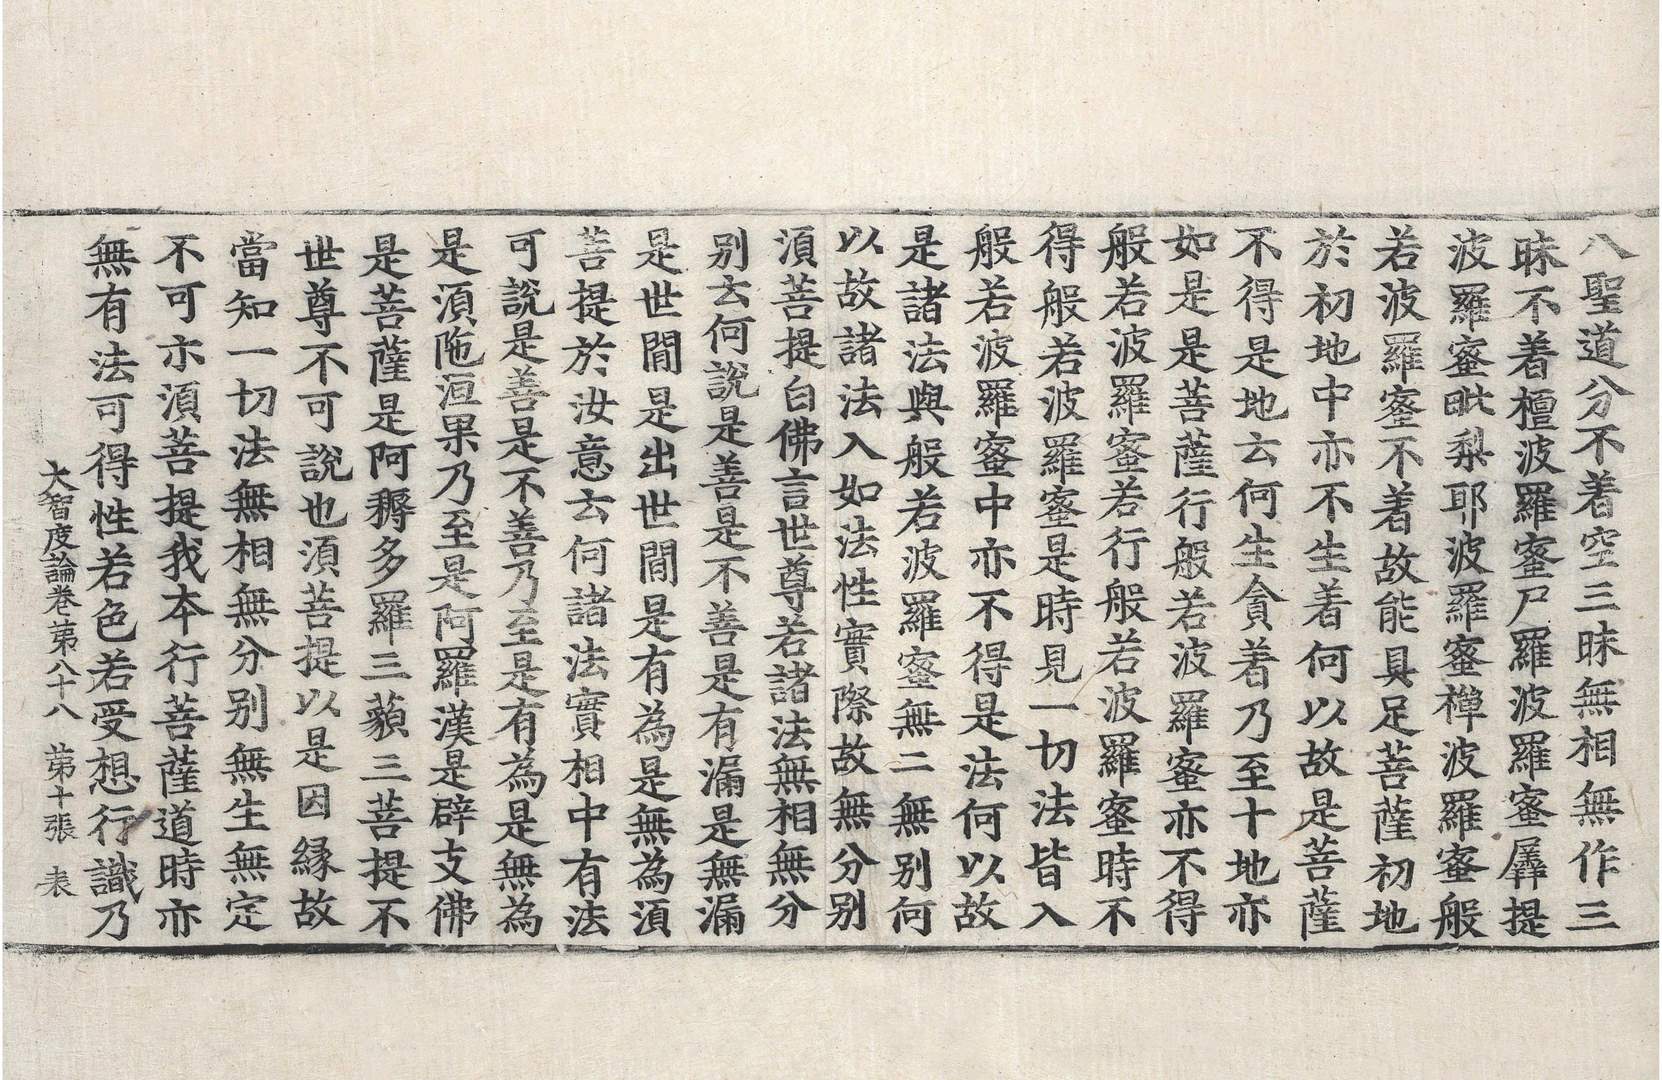 八聖道分不着空三昧無相無作三
昧不着檀波羅蜜尸羅波羅蜜羼提
波羅蜜毗梨耶波羅蜜禅波羅蜜般
若波羅蜜不着故能具足菩薩初地
於初地中亦不生着何以故是菩薩
不得是地云何生貪着乃至十地亦
如是是菩薩行般若波羅蜜亦不得
般若波羅蜜若行般若波羅蜜時不
得般若波羅蜜是時見一切法皆入
般若波羅蜜中亦不得是法何以故
是諸法與般若波羅蜜無二無别何
以故諸法入如法性實際故無分别
湏菩提白佛言世尊若諸法無相無分
别云何說是善是不善是有漏是無漏
是世間是出世間是有為是無為湏
菩提於汝意云何諸法實相中有法
可說是善是不善乃至是有為是無為
是湏陁洹果乃至是阿羅漢是辟支佛
是菩薩是阿耨多羅三藐三菩提不
世尊不可說也湏菩提以是因緣故
當知一切法無相無分别無生無定
不可示湏菩提我本行菩薩道時亦
無有法可得性若色若受想行識乃
大智度論卷第八十八 第十張 表